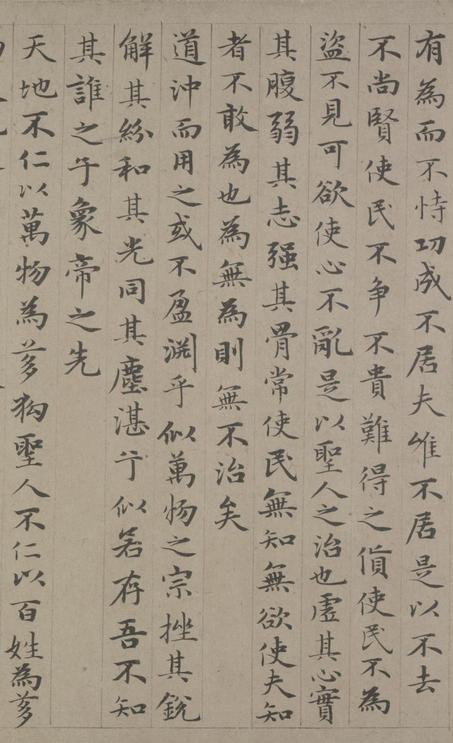 有為而不恃功成不居夫唯不居是以不去
不尚賢使民不爭不貴難得之貨使民不為
盜不見可欲使心不亂是以聖人之治也虛其心實
其腹弱其志强其骨常使民無知無欲使夫知
者不敢為也為無為則無不治矣
道沖而用之或不盈淵乎似萬物之宗挫其銳
解其紛和其光同其塵湛兮似若存吾不知
其誰之子象帝之先
天地不仁以萬物為芻狗聖人不仁以百姓為芻